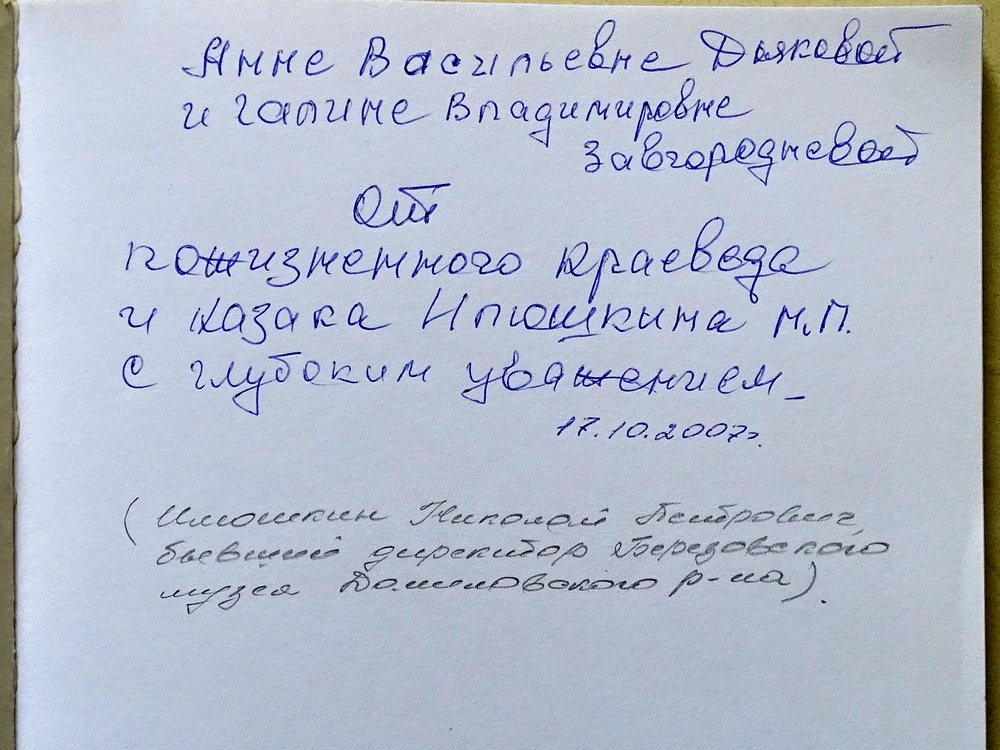 Анне Васильевне Дьяковой
и Галине Владимировне
Завгородневой
От
пожизненного краеведа
и казака Илюшкина Н.П.
с глубоким уважением_
17.10.2007г.
(Илюшкин Николай Петрович,
бывший директор Березовского
музея Даниловского р-на).